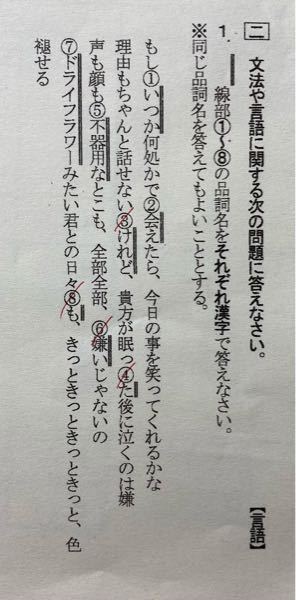 二 文法や言語に関する次の問題に答えなさい。 【言語】
1. 線部①〜⑧の品詞名をそれぞれ漢字で答えなさい。
※同じ品詞名を答えてもよいこととする。
もし①いつか何処かで②会えたら、今日の事を笑ってくれるかな
理由もちゃんと話せない③けれど、貴方が眠っ④た後に泣くのは嫌
声も顔も⑤不器用なとこも、全部全部、⑥嫌いじゃないの
⑦ドライフラワーみたい君との日々⑧も、きっときっときっときっと、色
褪せる